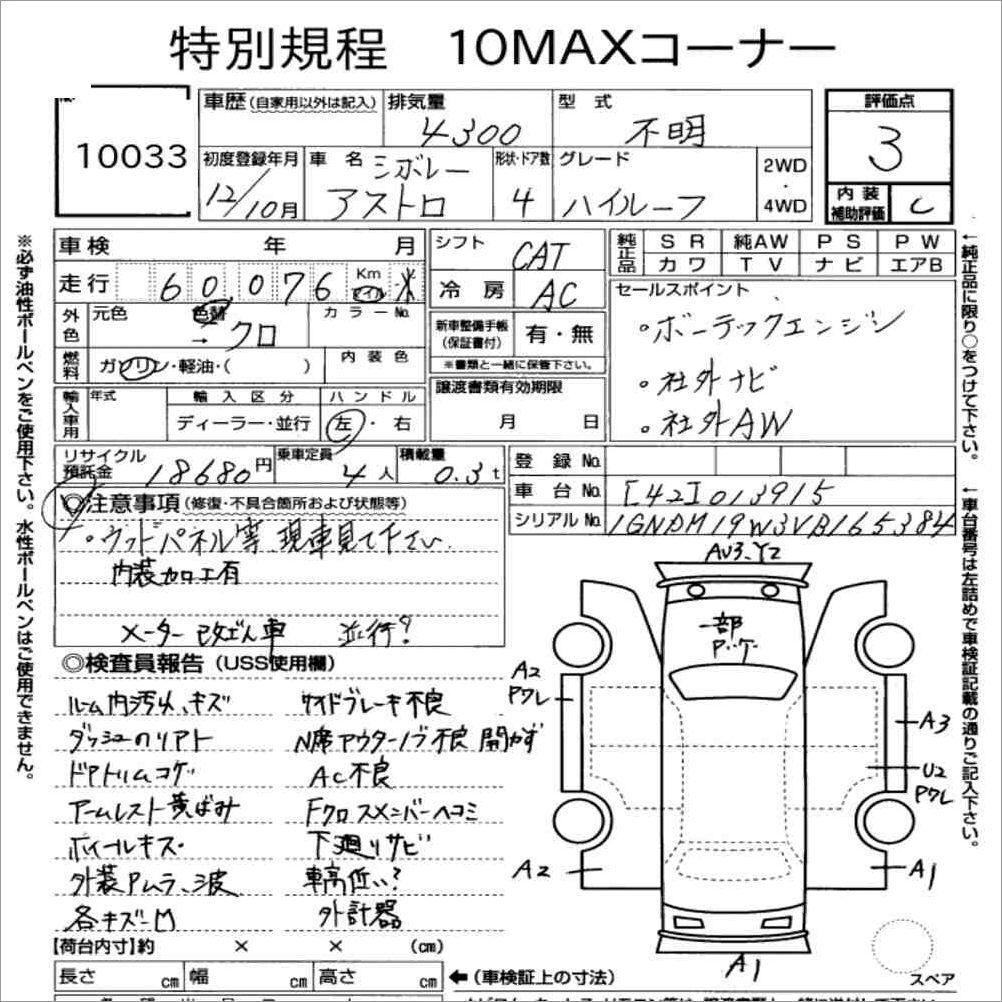 特別規程 10MAXコーナー
10033
車歴(自家用以外は記入)
排気量
4300
型式
不明
評価点
3
初度登録年月
12/10月
車名
シボレー
アストロ
形状・ドア数
4
グレード
ハイルーフ
2WD
・
4WD
内装
補助評価
C
車検 年 月
走行 60,076 Km マイル
外色
元色
色替
→ クロ
カラーNo.
燃料
ガソリン・軽油・( )
内装色
輸入車用
年式
輸入区分
ディーラー・並行
ハンドル
左・右
シフト
CAT
冷房
AC
新車整備手帳
(保証書付)
有・無
※書類と一緒に保管下さい。
譲渡書類有効期限
月 日
純正品
SR 純AW PS PW
カワ TV ナビ エアB
セールスポイント
・ボーテックエンジン
・社外ナビ
・社外AW
リサイクル
預託金
18680円
乗車定員
4人
積載量
0.3t
登録No.
車台No.
[42]013915
シリアルNo.
1GNDM19W3VB165384
◎注意事項(修復・不具合箇所および状態等)
・ウッドパネル等、現車見て下さい
内装加工有
メーター改ざん車 並行?
◎検査員報告(USS使用欄)
ルーム内汚れ、キズ
ダッシュのリアト
ドアトリムコゲ
アームレスト黄ばみ
ホイールキズ
外装Pムラ、波
各キズ凹
サイドブレーキ不良
N席アウターノブ不良 開かず
AC不良
Fクロスメンバーヘコミ
下廻りサビ
車高低い?
外計器
AU3、Y2
一部
Pッケ
A2
Pワレ
A3
U2
Pワレ
A2
A1
A1
スペア
【荷台内寸】約 × × (cm)
長さ cm 幅 cm 高さ cm
←(車検証上の寸法)
※必ず油性ボールペンをご使用下さい。水性ボールペンはご使用できません。
←純正品に限り○をつけて下さい。
←車台番号は左詰めで車検証記載の通りご記入下さい。